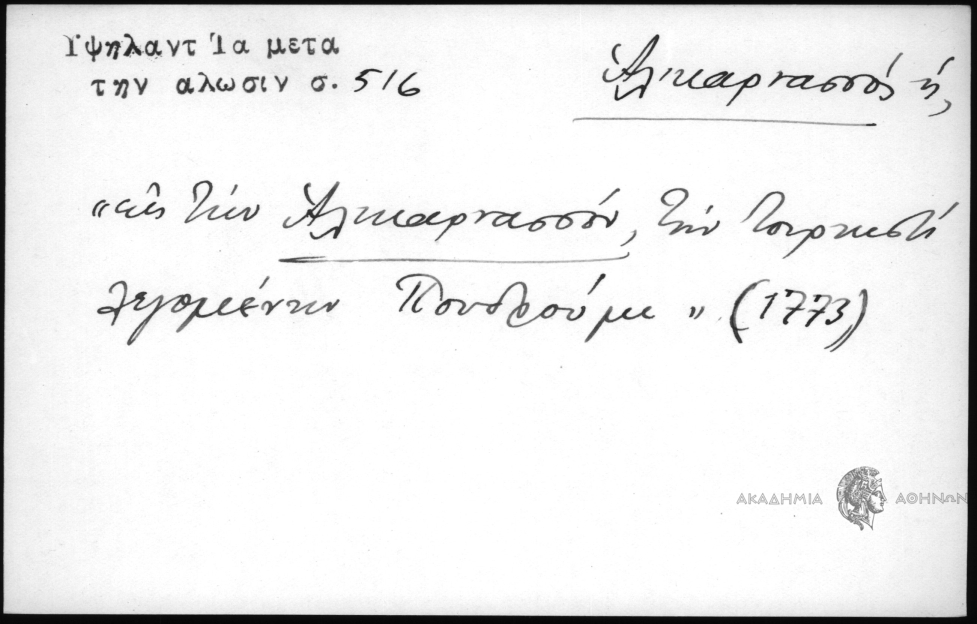 Υψηλαντ Ἰα μετα
την αλωσιν σ. 516
Ἁλικαρνασσός ἡ,
"εἰς τὴν Ἁλικαρνασσόν, τὴν τουρκιστὶ
λεγομένην Πουδρούμι" (1773)
ΑΚΑΔΗΜΙΑ ΑΘΗΝΩΝ